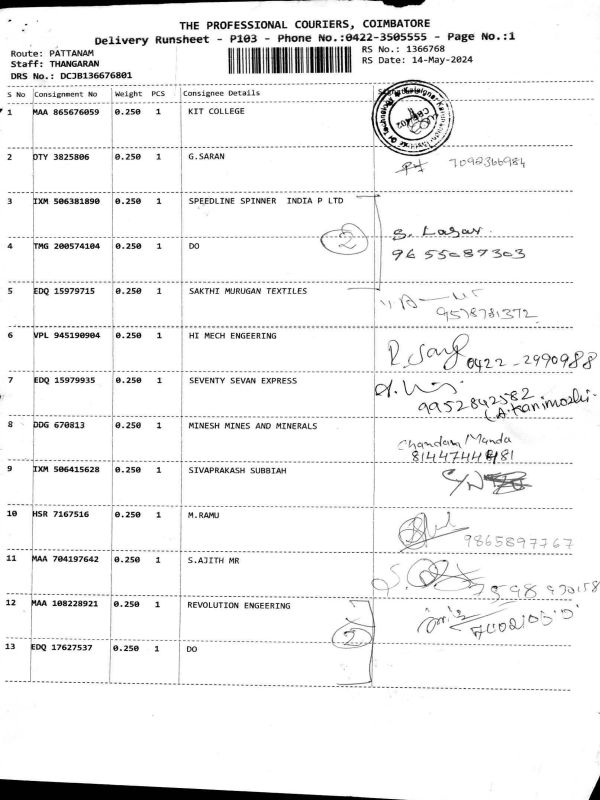 THE PROFESSIONAL COURIERS, COIMBATORE
Delivery Runsheet - P103 - Phone No.:0422-3505555 - Page No.:1
Route: PATTANAM RS No.: 1366768
Staff: THANGARAN RS Date: 14-May-2024
DRS No.: DCJB136676801
S No Consignment No Weight PCS Consignee Details
1 MAA 865676059 0.250 1 KIT COLLEGE
2 DTY 3825806 0.250 1 G.SARAN 7092366984
3 IXM 506381890 0.250 1 SPEEDLINE SPINNER INDIA P LTD
2 S. Lagar.
4 TMG 200574104 0.250 1 DO 96 55087303
5 EDQ 15979715 0.250 1 SAKTHI MURUGAN TEXTILES
9578781372
6 VPL 945190904 0.250 1 HI MECH ENGEERING
0422-2990988
7 EDQ 15979935 0.250 1 SEVENTY SEVAN EXPRESS
9952842582
(A.Kanimozhi.
8 DDG 670813 0.250 1 MINESH MINES AND MINERALS
Chandan Manda
9 IXM 506415628 0.250 1 SIVAPRAKASH SUBBIAH
10 HSR 7167516 0.250 1 M.RAMU
9865897767
11 MAA 704197642 0.250 1 S.AJITH MR
12 MAA 108228921 0.250 1 REVOLUTION ENGEERING
2
13 EDQ 17627537 0.250 1 DO